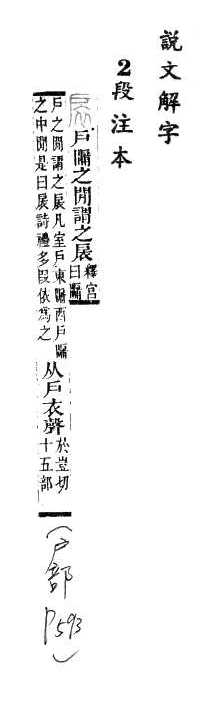 說文解字
2段注本
戶牖之閒謂之扆
釋宮
曰牖
戶之閒謂之扆凡室戶東牖西戶牖
之中閒是曰扆詩禮多叚依爲之
从戶衣聲
於豈切
十五部
(戶部 P593)